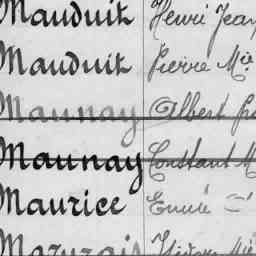 Mauduit Henri Jean
Mauduit Pierre Mie
Maunay Albert
Maunay Constant M
Maurice Emile